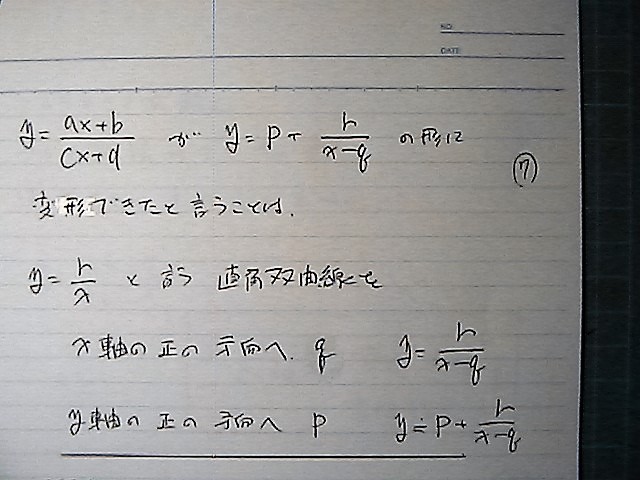 NO.
DATE
y = (ax+b)/(cx+d) が y = p + h/(x-q) の形に
⑦
変形できたと言うことは、
y = h/x と言う 直角双曲線を
x軸の正の方向へ q y = h/(x-q)
y軸の正の方向へ p y = p + h/(x-q)